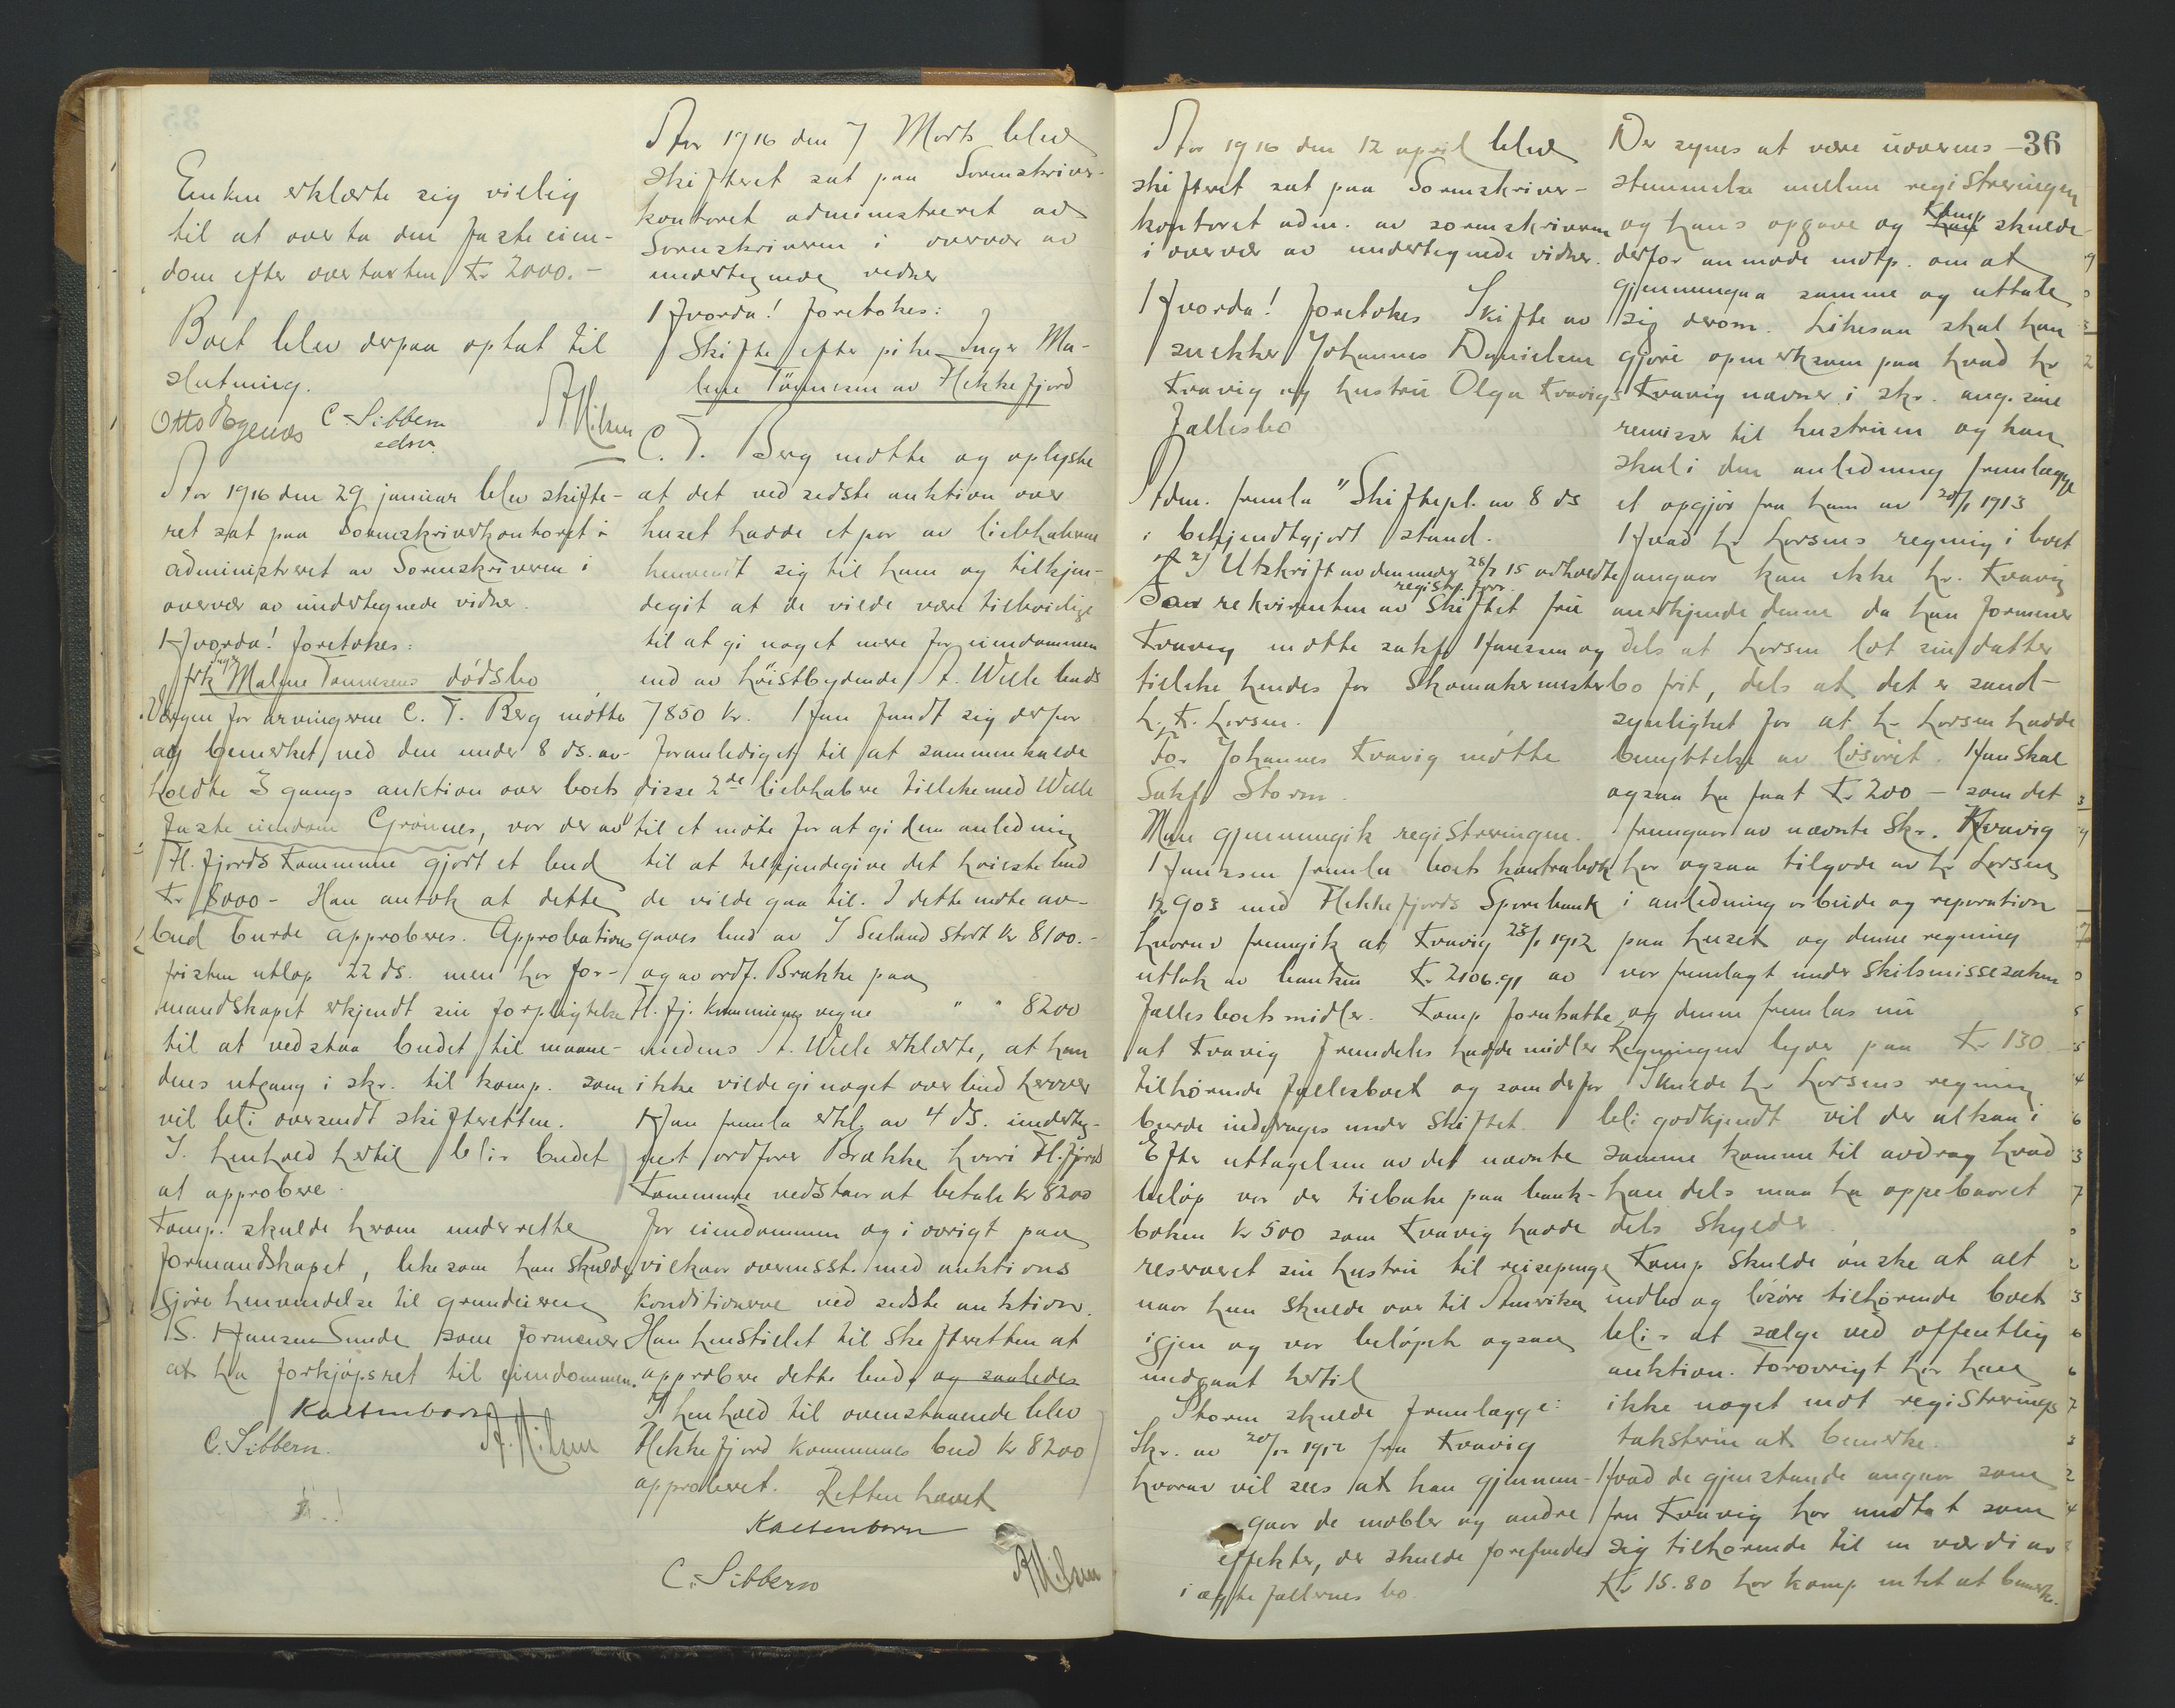 Enken erklærte sig villig
til at overta den faste eien-
dom efter overtaxten Kr 2000.-
Boet blev derpaa optat til
slutning.
Otto Egenæs C Sibbern A Nilsen
Aar 1916 den 29 januar blev skifte-
ret sat paa Sorenskriverkontoret i
administreret av Sorenskriveren i
overvær av undertegnede vidner.
Hvorda! foretokes:
frk Inger Maline Tønnesens dødsbo
Vergen for arvingerne C. T. Berg møtte
og bemerket ved den under 8 ds. av-
holdte 3 gangs auktion over boets
faste eiendom Grønnes, var der av
Fl.fjords Kommune gjort et bud
Kr 8000 - Han antok at dette
bud burde approberes. Approbations
fristen utløp 22 ds. men har for-
mandskapet erkjendt sin forpligtelse
til at vedstaa budet til maane-
dens utgang i skr. til komp. som
vil bli oversendt skifteretten.
I henhold hertil blir budet
at approbere.
Komp. skulde herom underrette
formandskapet, likesom han skulde
gjøre henvendelse til grundeieren
S. Hansen Sunde som formener
at ha forkjøpsret til eiendommen.
Kaltenborn
C. Sibbern. A. Nilsen
Aar 1916 den 7 Marts blev
skifteret sat paa Sorenskriver-
kontoret administreret av
Sorenskriveren i overvær av
undertegnede vidner
Hvorda! foretokes:
Skifte efter pike Inger Ma-
line Tønnesen av Flekkefjord
C. T. Berg møtte og oplyste
at det ved sidste auktion over
huset hadde et par av liebhaberne
henvendt sig til ham og tilkjen-
degit at de vilde være tilbøielige
til at gi noget mere for eiendommen
end av høistbydende A. Wiele buds
7850 kr. Han fandt sig derfor
foranlediget til at sammenkalde
disse 2de liebhabere tillikemed Wiele
til et møte for at gi dem anledning
til at tilkjendegive det høieste bud
de vilde gaa til. I dette møte av-
gaves bud av I Seland stort kr 8100.-
og av ordf. Brække paa
Fl.fj. kommunes vegne " " 8200
medens A. Wiele erklærte, at han
ikke vilde gi noget overbud herover
Han fremla erkl. av 4 ds. underteg-
net ordfører Brække hvori Fl.fjords
Kommune vedstaar at betale kr 8200
for eiendommen og i øvrigt paa
vilkaar overensst. med auktions
konditionerne ved sidste auktion.
Han henstillet til skifteretten at
approbere dette bud, og saaledes
I henhold til ovenstaaende blev
Flekkefjord kommunes bud kr 8200
approberet. Retten hævet
Kaltenborn
C. Sibbern A Nilsen
36
Aar 1916 den 12 april blev
skifteret sat paa Sorenskriver-
kontoret adm. av sorenskriveren
i overvær av undertegnede vidner.
Hvorda! foretokes Skifte av
snekker Johannes Danielsen
Kvavig og hustru Olga Kvavigs
fællesbo
Adm. fremla "Skiftepl. av 8 ds
i bekjendtgjort stand.
2) Utskrift av den under 28/2 15 avholdte
registr. forr.
rekvirenten av skiftet fru
Kvavig møtte sakf. Hanssen og
tillike hendes far Skomakermester
L. K. Larsen.
For Johannes Kvavig møtte
Sakf. Storm.
Man gjennemgik registreringen.
Hanssen fremla boets kontrabok
No 903 med Flekkefjords Sparebank
hvorav fremgik at Kvavig 23/1 1912
uttok av banken Kr 2106.91 av
fællesboets midler. Komp. forutsatte
at Kvavig fremdeles hadde midler
tilhørende fællesboet og som derfor
burde inddrages under skiftet.
Efter uttagelsen av det nævnte
beløp var der tilbake paa bank-
boken kr 500 som Kvavig hadde
reserveret sin hustru til reisepenge
naar hun skulde over til Amerika
igjen og var beløpet ogsaa
medgaat hertil
Storm skulde fremlægge:
Skr. av 20/12 1912 fra Kvavig
hvorav vil sees at han gjennem-
gaar de møbler og andre
effekter, der skulde forefindes
i ægtefællernes bo.
Der synes at være uoverens-
stemmelse mellem registreringen
og hans opgave og han komp skulde
derfor anmode motp. om at
gjennemgaa samme og uttale
sig derom. Likesaa skal han
gjøre opmerksom paa hvad hr
Kvavig nævner i skr. ang. sine
remisser til hustruen og han
skal i den anledning fremlægge
et opgjør fra ham av 20/1 1913
Hvad hr Larsens regning i boet
angaar kan ikke hr. Kvavig
anerkjende denne da han formener
dels at Larsen lot sin datter
bo frit, dels at det er sand-
synlighet for at hr Larsen hadde
benyttelse av løsøret. Han skal
ogsaa ha faat Kr 200 - som det
fremgaar av nævnte skr. Kvavig
har ogsaa tilgode av hr Larsen
i anledning arbeide og reparation
paa huset og denne regning
var fremlagt under skilsmissesaken
og denne fremlas nu
Regningen lyder paa Kr 130.
Skulde hr Larsens regning
bli godkjendt vil der altsaa i
samme komme til avdrag hvad
han dels maa ha oppebaaret
dels skylder.
Komp. skulde ønske at alt
indbo og løsøre tilhørende boet
blir at sælge ved offentlig
auktion. Forøvrigt har han
ikke noget mot registrerings
taksterne at bemerke.
Hvad de gjenstande angaar som
fru Kvavig har undtat som
sig tilhørende til en værdi av
Kr 15.80 har komp. intet at bemerke.